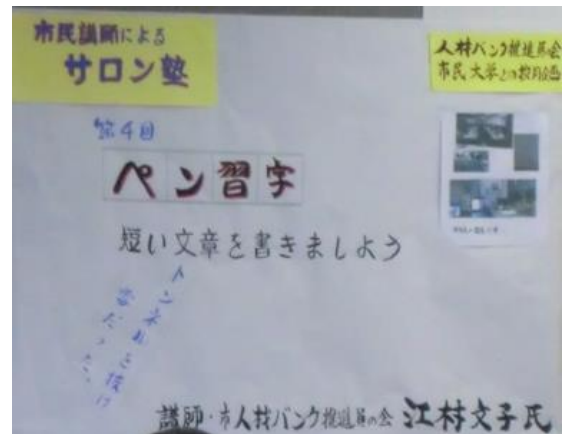 市民講師による
サロン塾
人材バンク推進員会
市民大学との協同企画
第4回
ペン習字
短い文章を書きましょう
トンネルを抜け
雪だった。
講師・市人材バンク推進員の会 江村文子氏